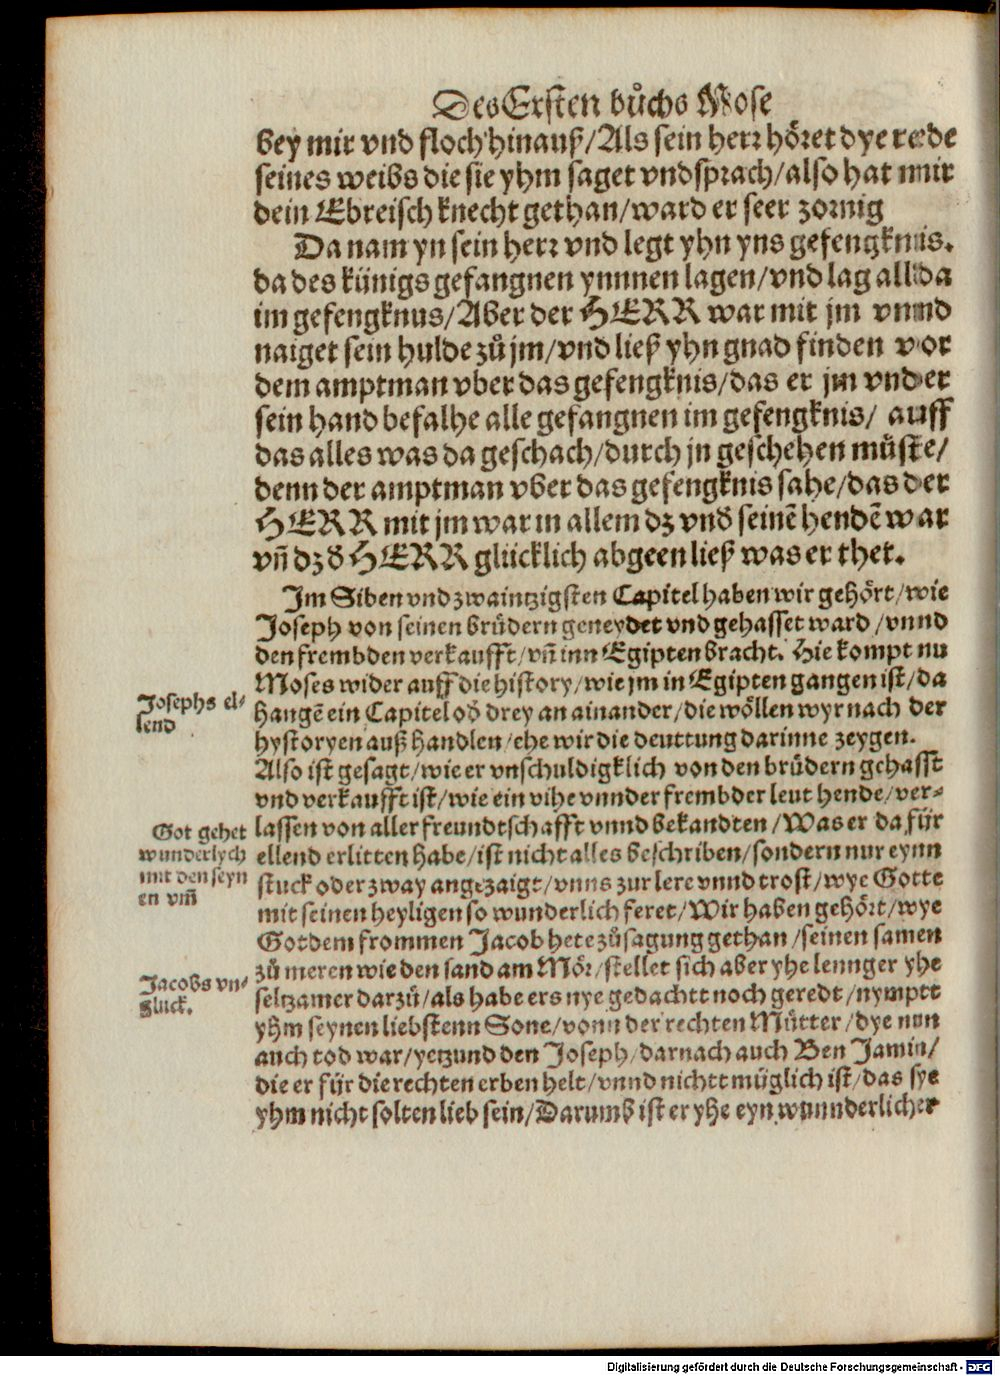 Des Ersten bůchs Mose
bey mir vnd floch hinauß/Als sein herr höret dye rede
seines weibs die sie yhm saget vnd sprach/also hat mir
dein Ebreisch knecht gethan/ward er seer zornig
Da nam yn sein herr vnd legt yhn yns gefengknis.
da des künigs gefangnen ynnnen lagen/vnd lag allda
im gefengknus/Aber der HERR war mit jm vnnd
naiget sein hulde zů jm/vnd ließ yhn gnad finden vor
dem amptman vber das gefengknis/das er jm vnder
sein hand befalhe alle gefangnen im gefengknis/ auff
das alles was da geschach/durch jn geschehen müste/
denn der amptman vber das gefengknis sahe/das der
HERR mit jm war in allem dz vnd seinē hendē war
vñ dz d HERR glücklich abgeen ließ was er thet.
Im Siben vnd zwaintzigsten Capitel haben wir gehört/wie
Joseph von seinen brüdern geneydet vnd gehasset ward/vnnd
den frembden verkaufft/vñ inn Egipten bracht. Hie kompt nu
Moses wider auff die history/wie jm in Egipten gangen ist/da
Josephs el-
lend
hangē ein Capitel od drey an ainander/die wöllen wyr nach der
hystoryen auß handlen/ehe wir die deuttung darinne zeygen.
Also ist gesagt/wie er vnschuldigklich von den brüdern gehasst
vnd verkaufft ist/wie ein vihe vnnder frembder leut hende/ver-
Got gehet
wunderlych
mit den seyn
en vm̃
lassen von aller freundtschafft vnnd bekandten/Was er da für
ellend erlitten habe/ist nicht alles beschriben/sondern nur eynn
stuck oder zway angezaigt/vnns zur lere vnnd trost/wye Gott
mit seinen heyligen so wunderlich feret/Wir haben gehört/wye
Got dem frommen Jacob hete zůsagung gethan/seinen samen
Jacobs vn-
gluck.
zů meren wie den sand am Mör/stellet sich aber yhe lennger yhe
seltzamer darzů/als habe ers nye gedachtt noch geredt/nymptt
yhm seynen liebstenn Sone/vonn der rechten Mütter/dye nun
auch tod war/yetzund den Joseph/darnach auch Ben Jamin/
die er für die rechten erben helt/vnnd nichtt müglich ist/das sye
yhm nicht solten lieb sein/Darumb ist er yhe eyn wunnderlicher
Digitalisierung gefördert durch die Deutsche Forschungsgemeinschaft - DFG